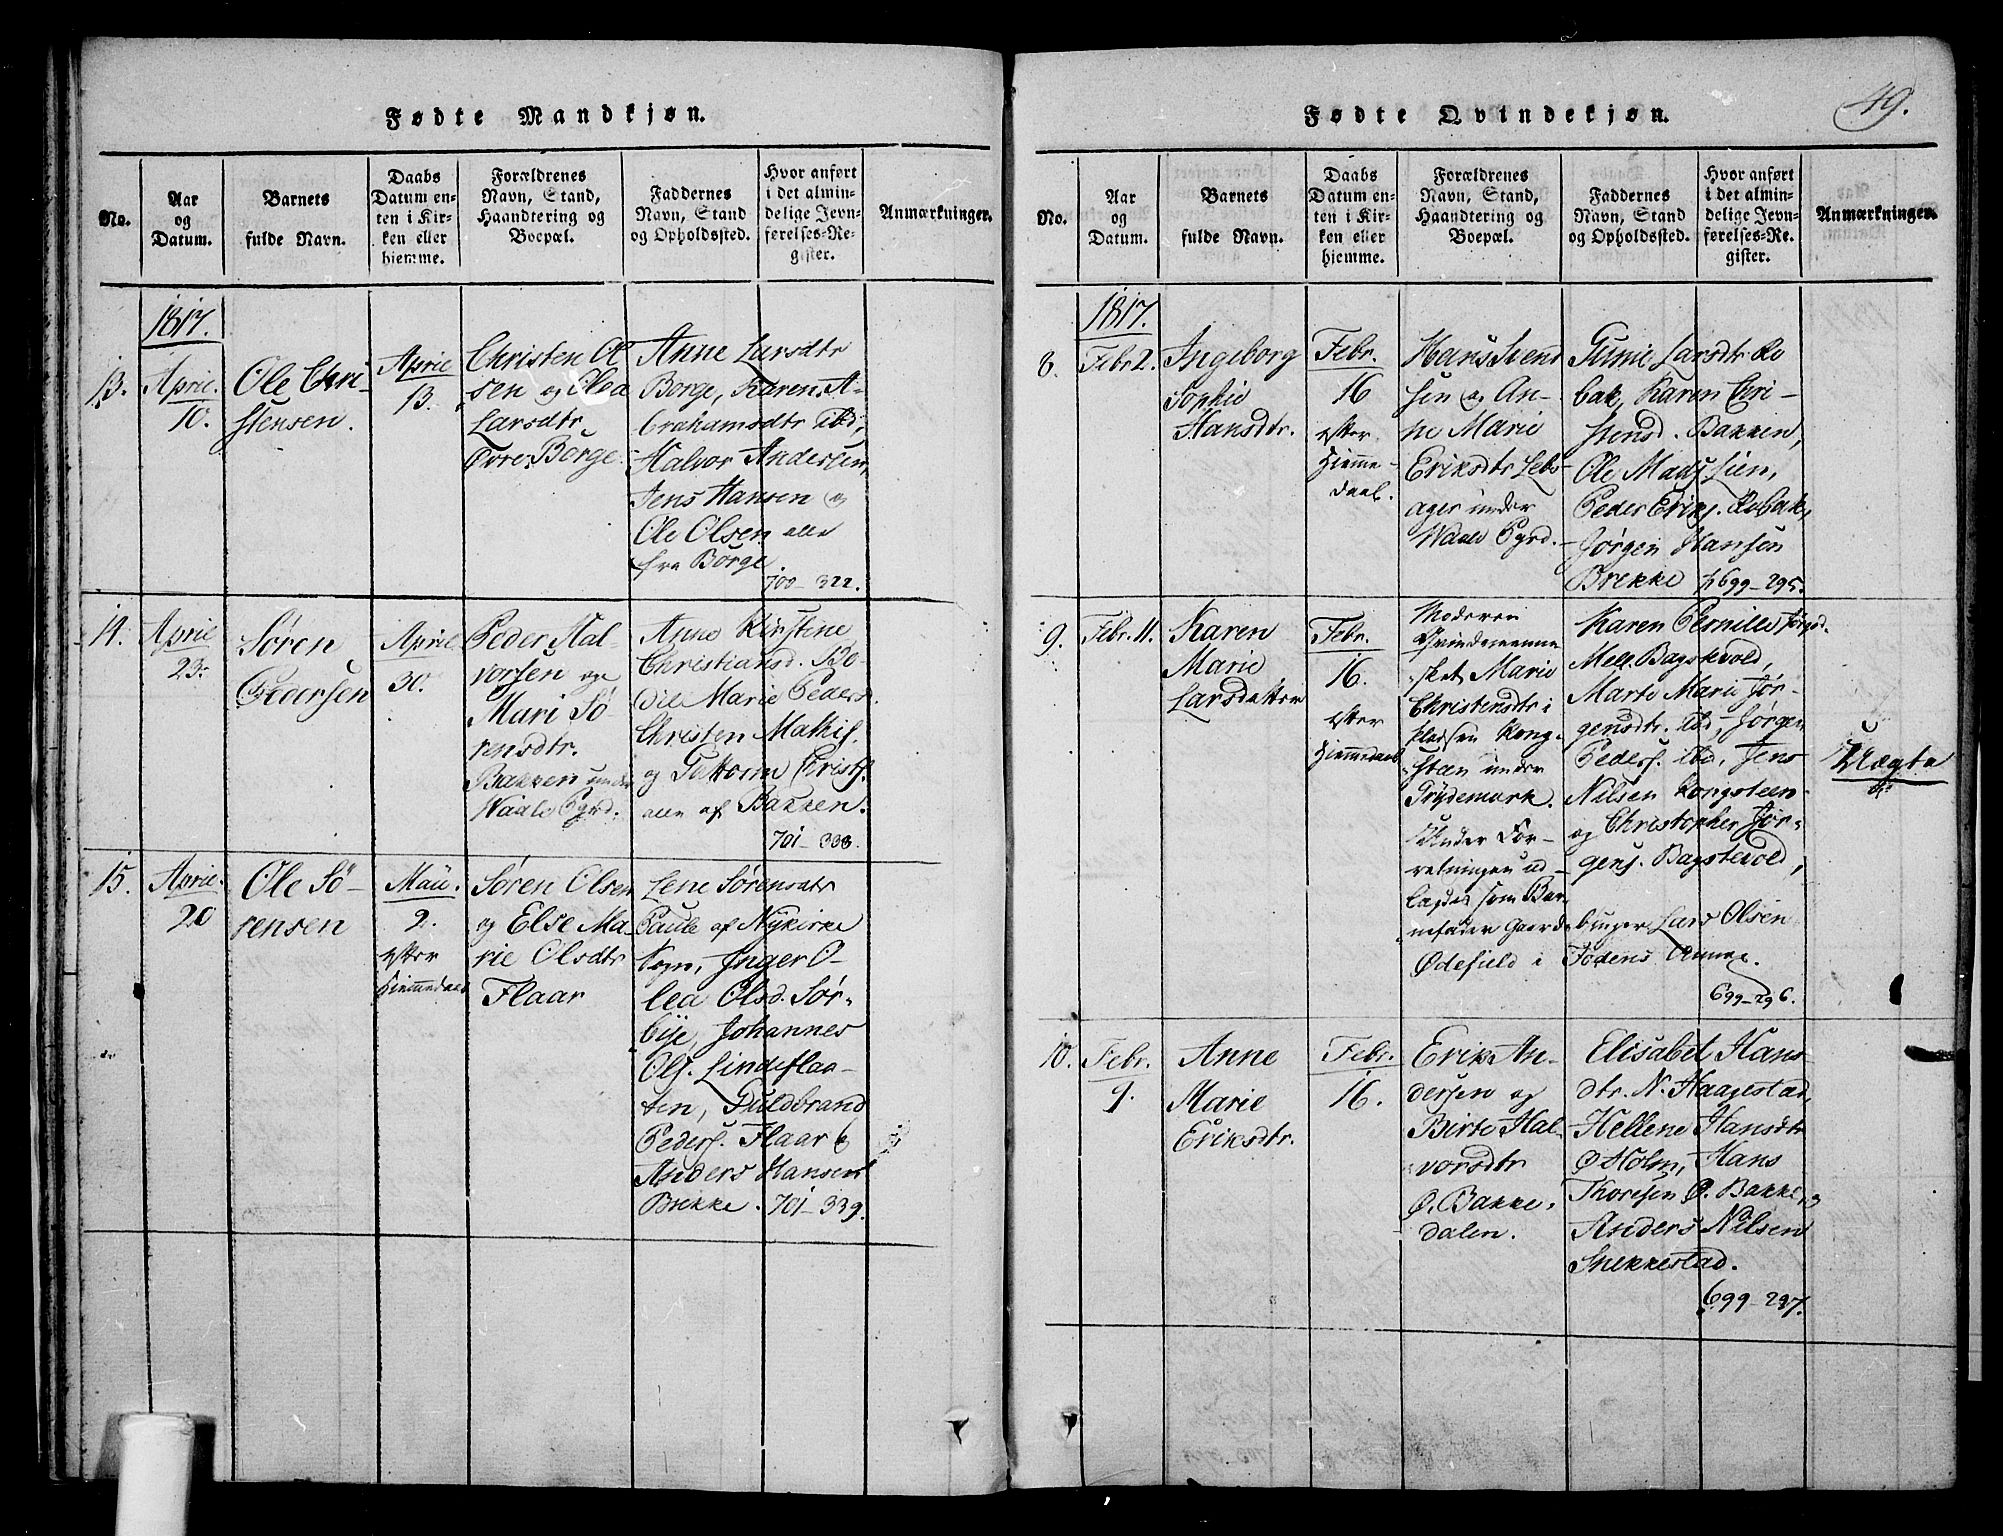 Fødte Mandkjøn.
No.
Aar
og
Datum.
Barnets
fulde Navn.
Daabs
Datum en-
ten i Kir-
ken eller
hjemme.
Forældrenes
Navn, Stand,
Haandtering og
Boepæl.
Faddernes
Navn, Stand
og Opholdssted.
Hvor anført
i det almin-
delige Jevn-
førelses-Re-
gister.
Anmærkninger.
1817.
13.
April
10.
Ole Chri-
stensen.
April
13.
Christen Ol
sen og Olea
Larsdtr
Øvre Borge.
Anne Larsdtr
Borge, Karen A-
brahamsdtr ibd,
Halvor Andersen,
Jens Hansen og
Ole Olsen alle
fra Borge.
700-322.
14.
April
23.
Søren
Pedersen
April
30.
Peder Hal-
vorsen og
Mari Sö-
rensdtr.
Bakken under
Waale Pgrd.
Anne Kirstine
Christiansd. Bo-
dil Marie Peders
Christen Mathis.
og Guttorm Christ.
alle af Bakken.
701-338.
15.
April.
20
Ole Sö-
rensen
Mai.
2.
efter
Hiemmedaab
Søren Olsen
og Else Ma-
rie Olsdtr
Flaar
Lene Sørensdtr
Paule af Nykirke
Sogn, Inger O-
lea Olsd. Sør-
bye, Johannes
Ols. Lindeflaa-
ten, Guldbrand
Peders. Flaar &
Anders Hansen
Brekke.
701-339.
Fødte Qvindekjøn.
49.
No.
Aar
og
Datum.
Barnets
fulde Navn.
Daabs
Datum en-
ten i Kir-
ken eller
hjemme.
Forældrenes
Navn, Stand,
Haandtering og
Boepæl.
Faddernes
Navn, Stand
og Opholdssted.
Hvor anført
i det almin-
delige Jevn-
førelses-Re-
gister.
Anmærkninger.
1817.
8.
Febr 2.
Ingeborg
Sophie
Hansdtr.
Febr.
16
efter
Hiemme-
daab.
Hans Svend
sen og An-
ne Marie
Eriksdtr Leb-
ager under
Waale Pgrd.
Gunil Larsdtr Ro
bak, Karen Chri-
stensd. Bakken,
Ole Madssen,
Peder Eriks. Robak,
Jørgen Hansen
Brekke
699-295.
9.
Febr. 11.
Karen
Marie
Larsdatter
Febr.
16.
efter
Hiemmedaab
Moderen
Qvindemenne
sket Marie
Christensdtr i
pladsen Kong-
steen under
Trydemark.
Under For-
retningen ud-
lagdes som Bar
nefader Gaard-
bruger Lars Olsen
Ødefield i Fodens Annex.
Karen Pernille Jørgsd.
Mell. Bagstevold,
Marte Marie Jør-
gensdtr. ibd, Jørgen
Peders. ibd, Jens
Nilsen Kongsteen
og Christopher Jør-
gens. Bagstevold,
699-296.
Uægte
10.
Febr.
9.
Anne
Marie
Eriksdtr.
Febr.
16.
Erik An-
dersen og
Birte Hal-
vorsdtr
Ø. Bakke-
dalen.
Elisabet Hans
dtr. N. Haagestad,
Hellene Hansdtr
Ø Holm, Hans
Thoresen Ø. Bakke, og
Anders Nilsen
Snekkestad.
699-297.